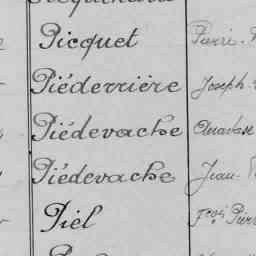 Picquet Pierre
Piéderrière Joseph
Piédevache
Piédevache Jean
Piel Fçois Pierre